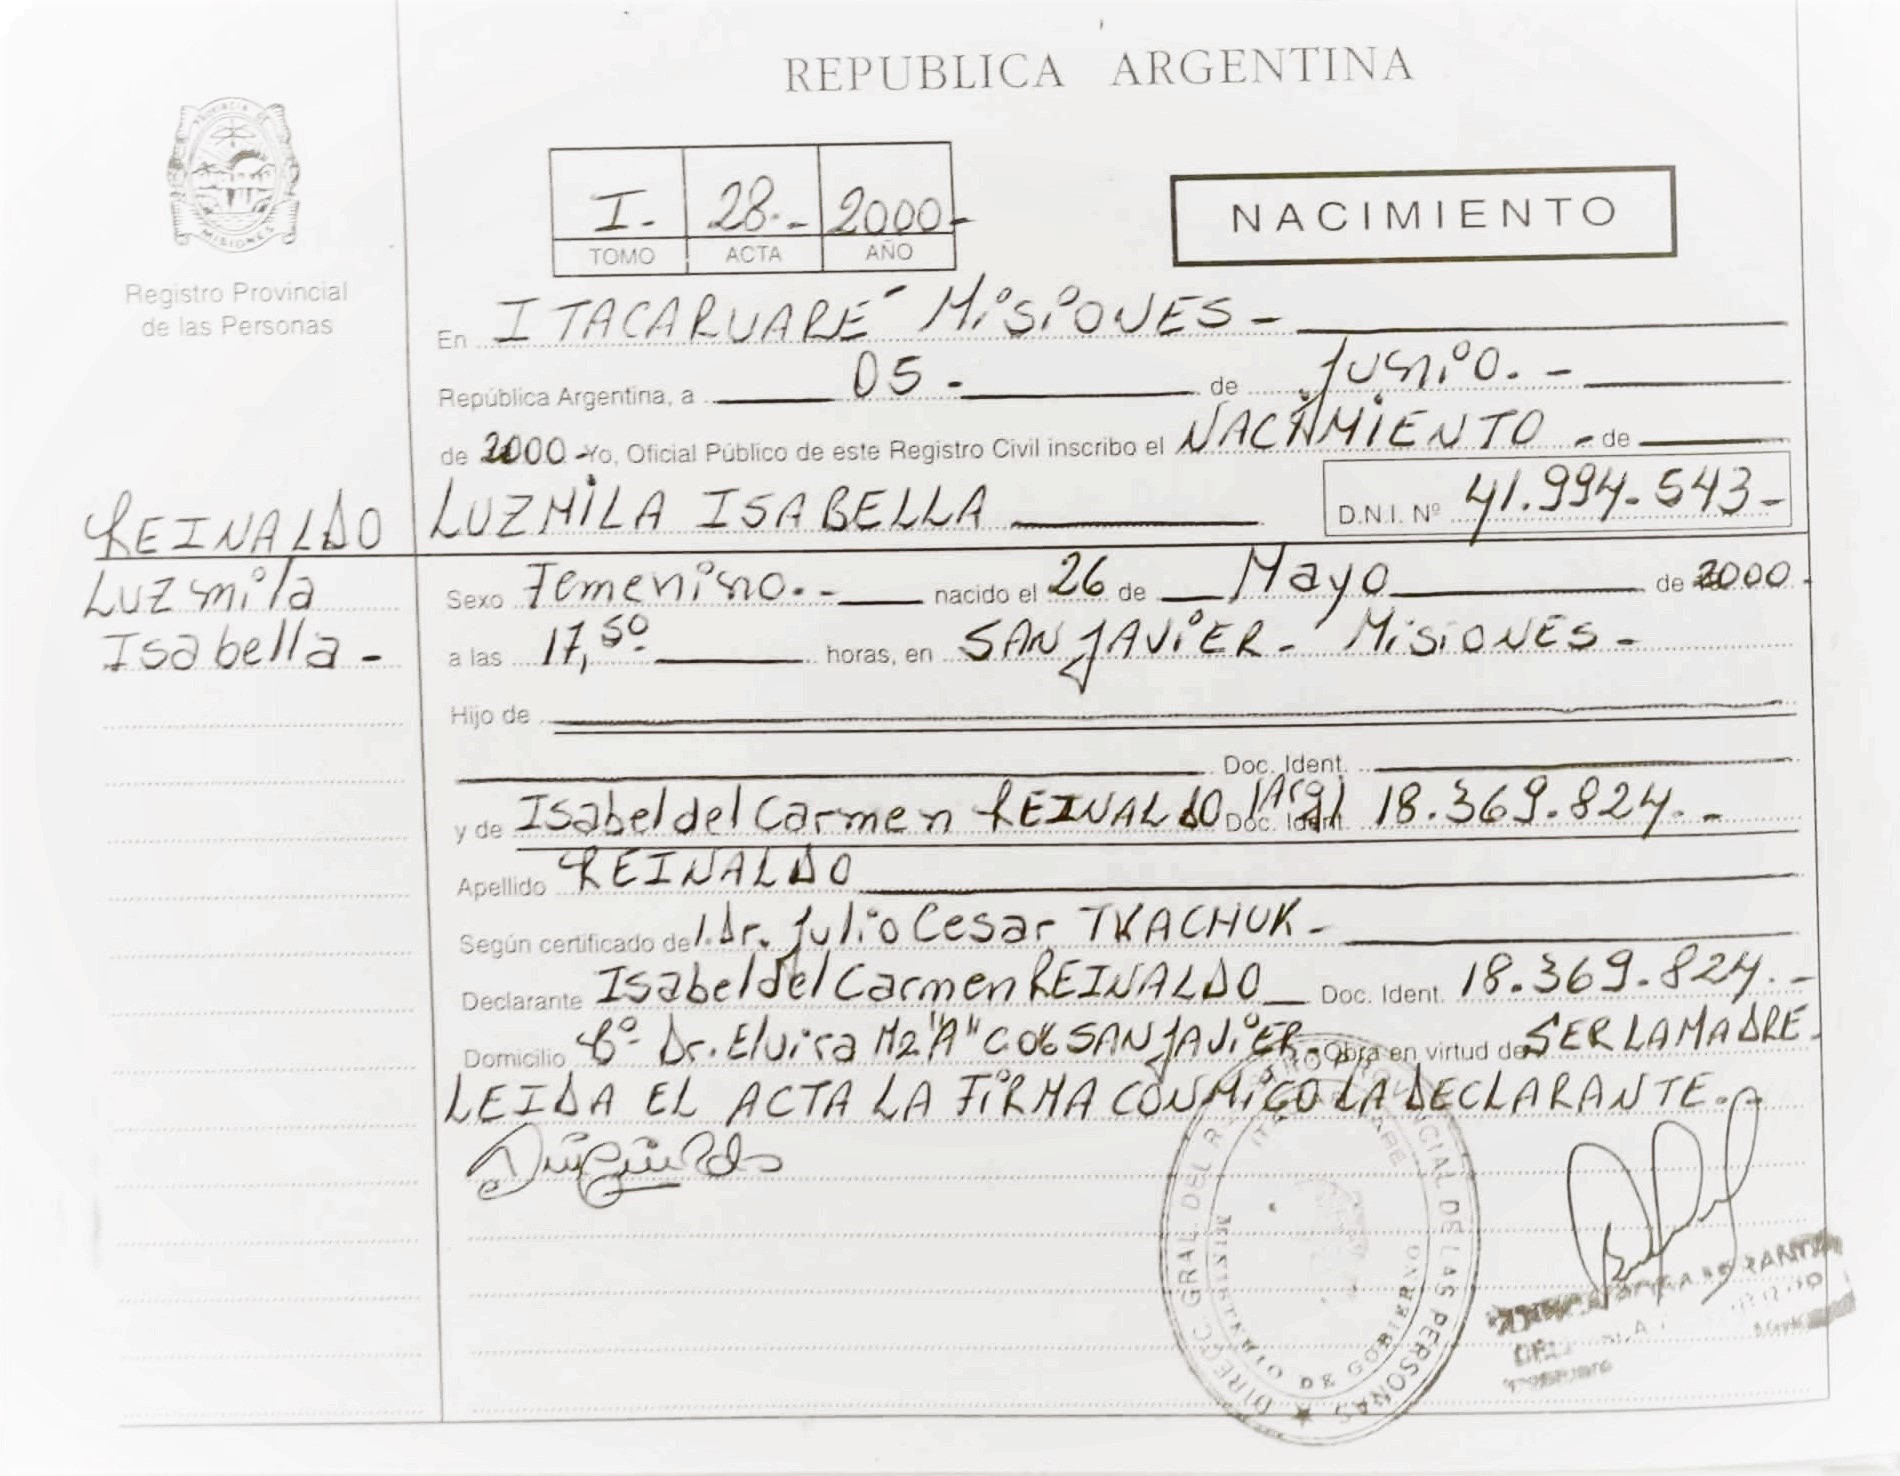 REPUBLICA ARGENTINA
PROVINCIA DE
MISIONES
Registro Provincial
de las Personas
I.- 28.- 2000-
TOMO ACTA AÑO
NACIMIENTO
En ITACARUARÉ MISIONES -
República Argentina, a 05 - de Junio. -
de 2000 - Yo, Oficial Público de este Registro Civil inscribo el NACIMIENTO - de
LUZMILA ISABELLA D.N.I. Nº 41.994.543-
REINALDO
Luzmila
Isabella -
Sexo Femenino. - nacido el 26 de Mayo de 2000.
a las 17,50 horas, en SAN JAVIER - MISIONES -
Hijo de
Doc. Ident.
y de Isabel del Carmen REINALDO Doc. Ident. 18.369.824. -
Apellido REINALDO
Según certificado del. Dr. Julio Cesar TKACHUK -
Declarante Isabel del Carmen REINALDO Doc. Ident. 18.369.824. -
Domicilio Bº Dr. Elvira Mz "A" C 06 SAN JAVIER - Obra en virtud de SER LA MADRE.
LEIDA EL ACTA LA FIRMA CONMIGO LA DECLARANTE. -
DIREC. GRAL. DEL PROVINCIAL DE LAS PERSONAS
MINISTERIO DE GOBIERNO